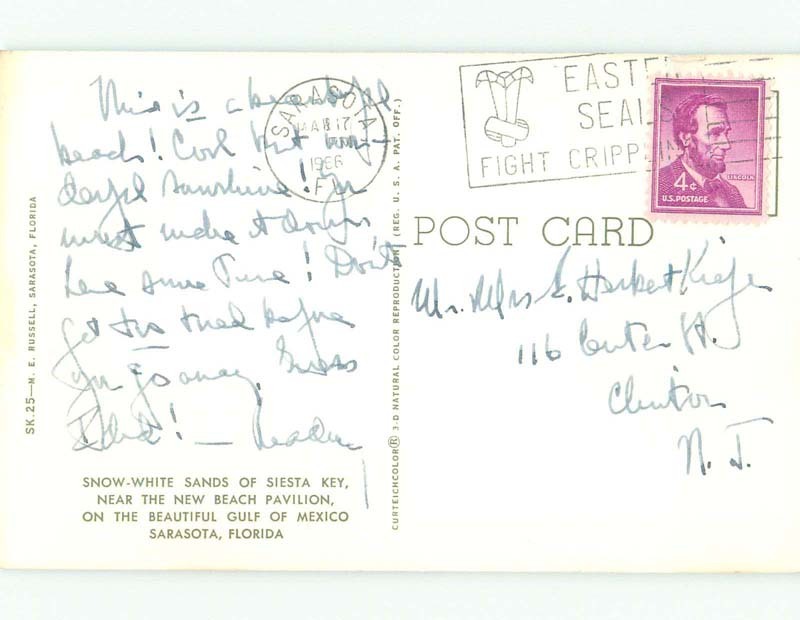 This is a beautiful
beach! Cool but won-
derful sunshine! You
must make it down
here some time! Don't
get too tired before
you go away.
SARASOTA
MAR 17
PM
1966
FLA
EASTER
SEALS
FIGHT CRIPPLING
LINCOLN
4¢
U.S. POSTAGE
POST CARD
Mr. Mrs E. Herbert
116 Center St.
Clinton
N. J.
SK.25—M. E. RUSSELL, SARASOTA, FLORIDA
SNOW-WHITE SANDS OF SIESTA KEY,
NEAR THE NEW BEACH PAVILION,
ON THE BEAUTIFUL GULF OF MEXICO
SARASOTA, FLORIDA
CURTEICHCOLOR® 3-D NATURAL COLOR REPRODUCTION (REG. U. S. A. PAT. OFF.)